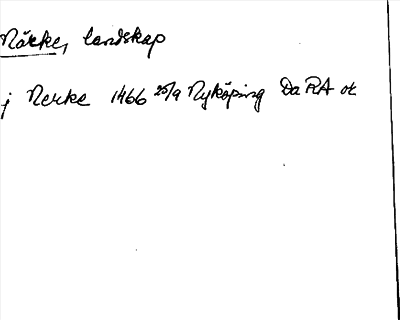 Närke, landskap
j Nerke 1466 25/9 Nyköping DaRA ok